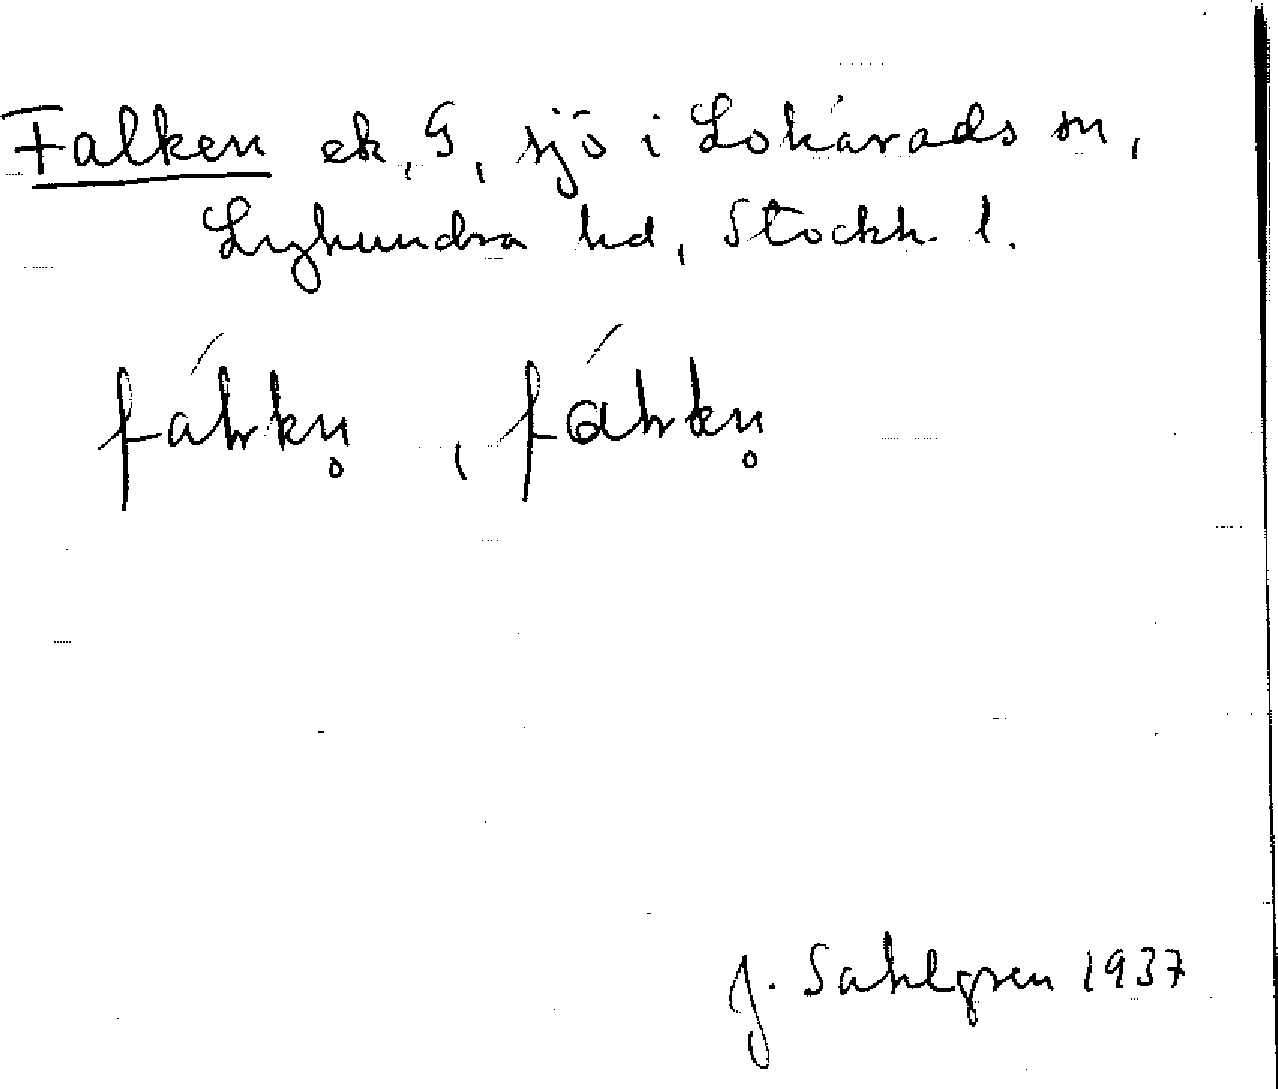 Falken ek, G, sjö i Lohärads sn,
Lyhundra hd, Stockh. l.
fáhrkn̥ , fáhrkn̥
J. Sahlgren 1937